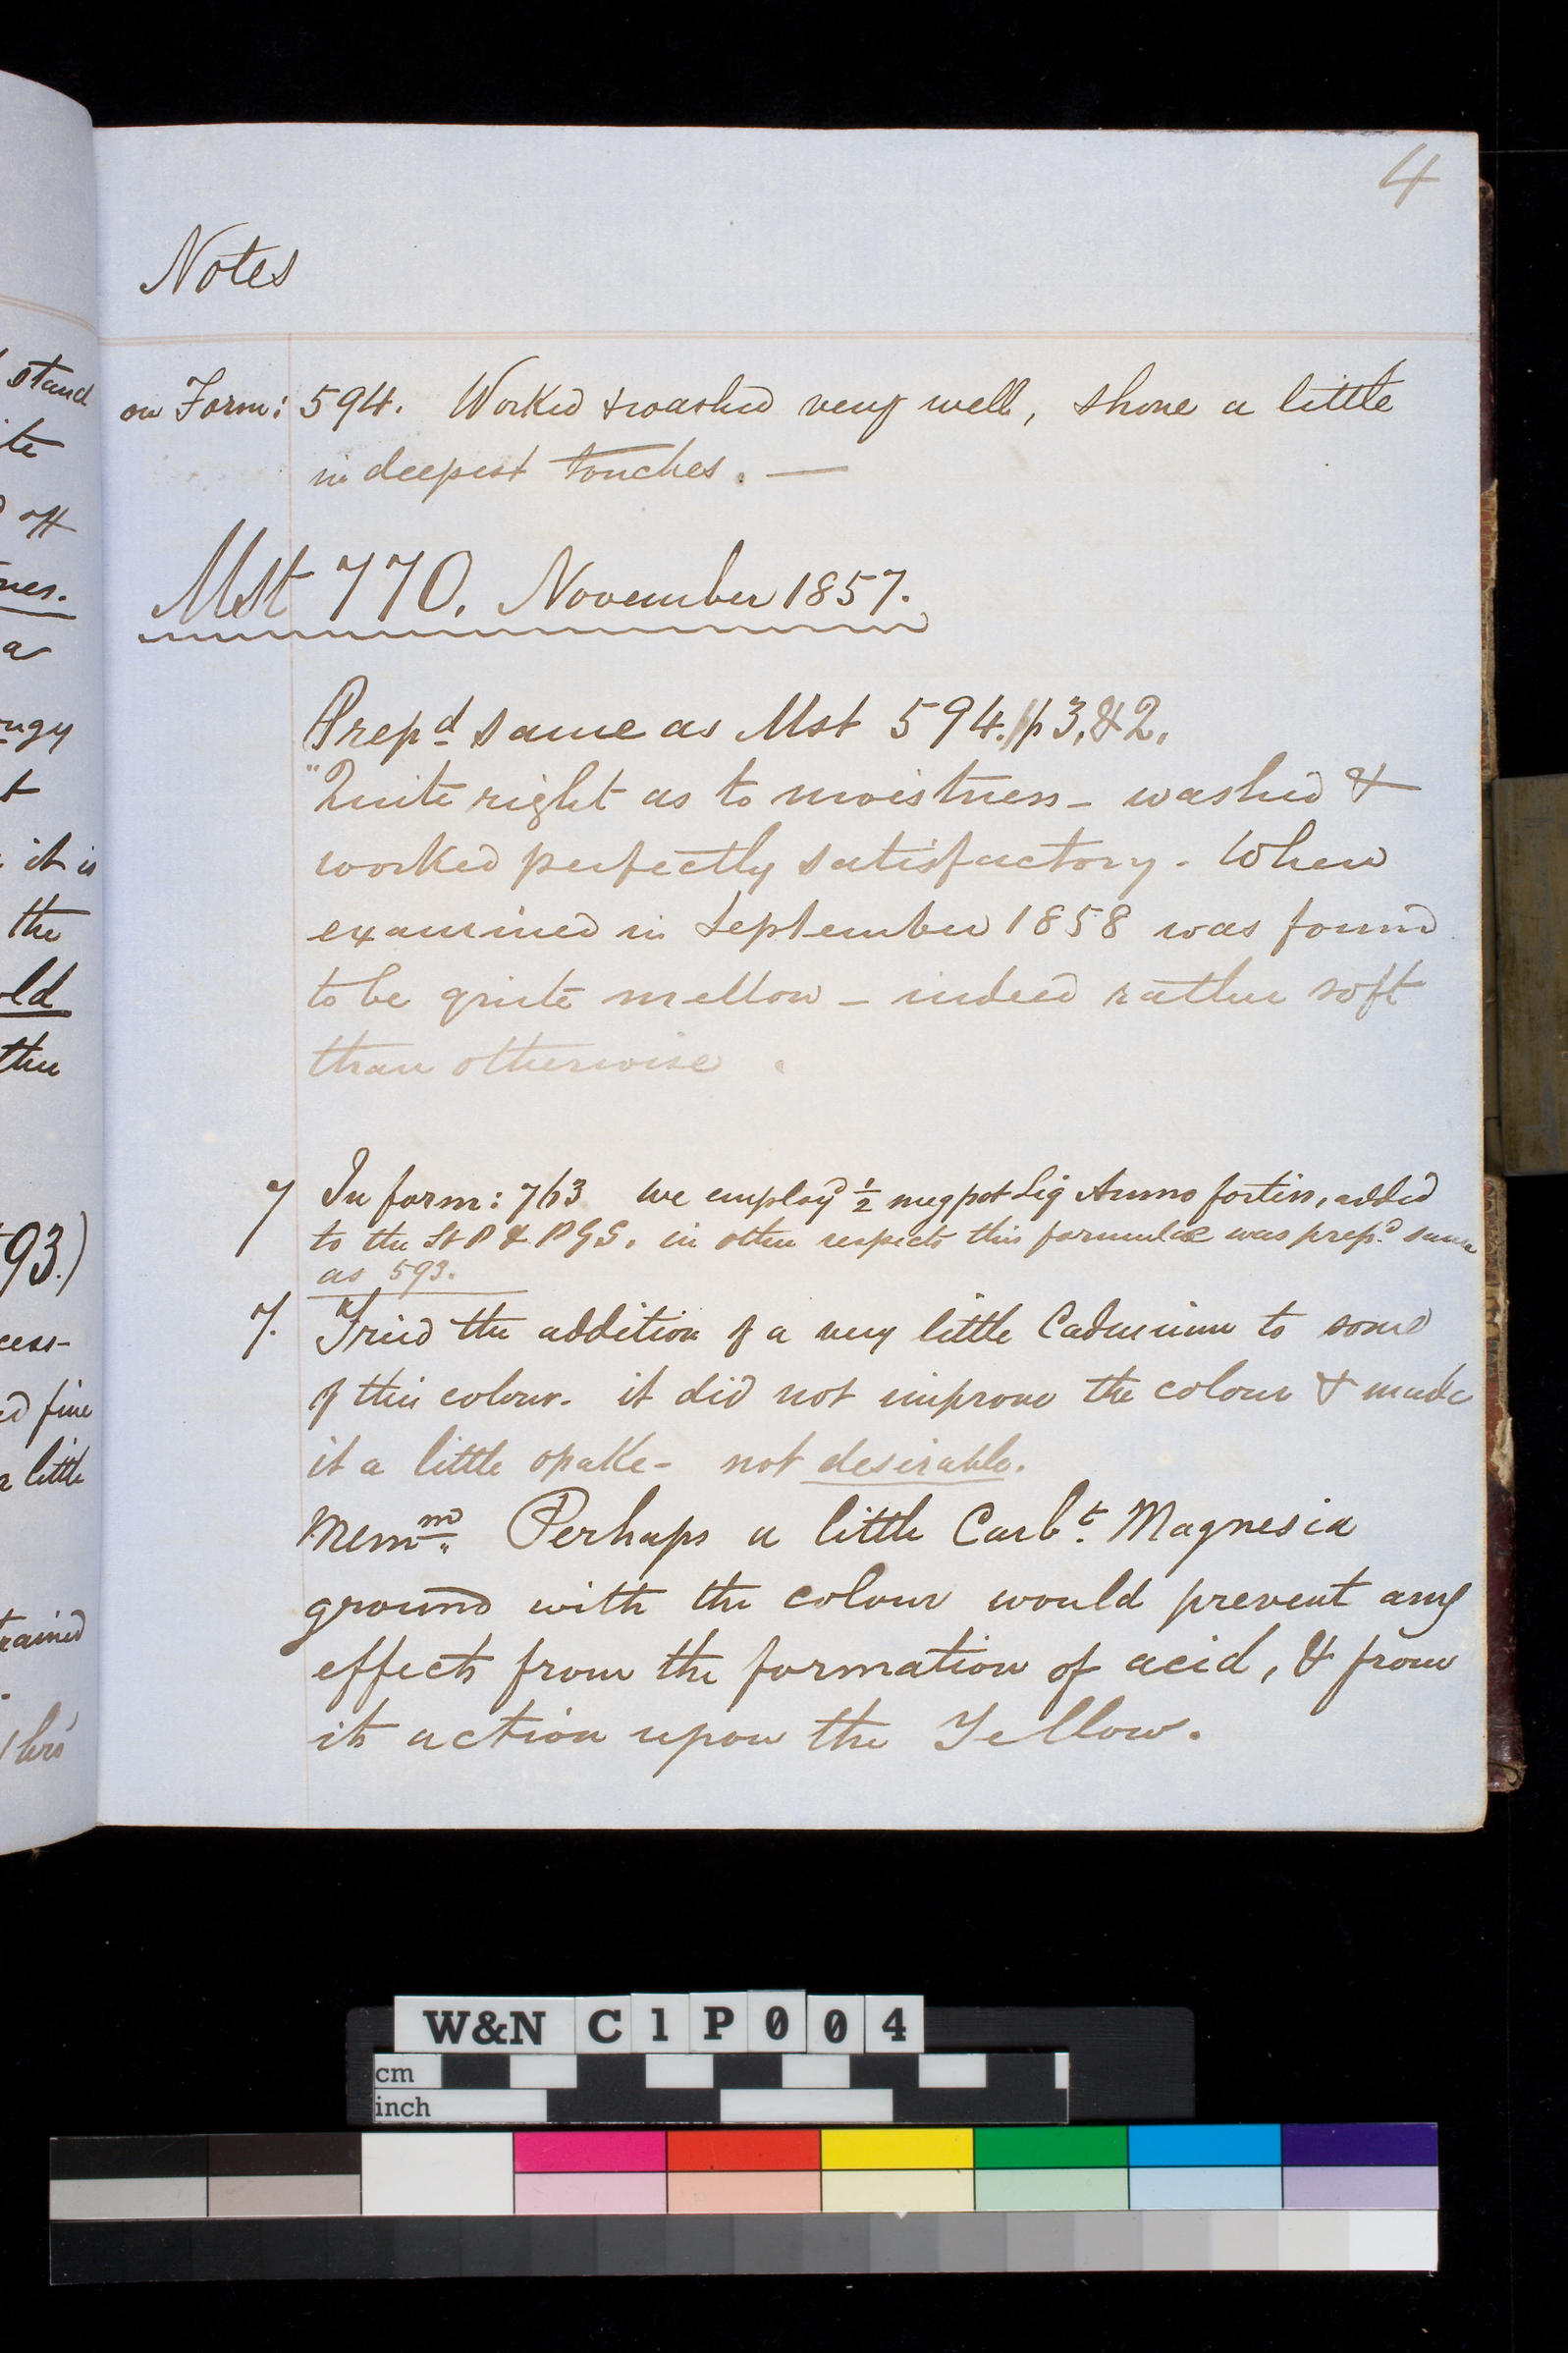 4
Notes
on Form: 594. Worked & washed very well, shone a little
in deepest touches. —
Mst 770. November 1857.
Prepd same as Mst 594. p 3, & 2.
"Quite right as to moistness - washed &
worked perfectly satisfactory - When
examined in September 1858 was found
to be quite mellow - indeed rather soft
than otherwise.
7 In form: 763 we employd ½ megpot Liq Ammo fortiss, added
to the St P & P G S. in other respects this formulae was prepd same
as 593.
7. "Tried the addition of a very little Cadmium to some
of this colour. it did not improve the colour & made
it a little opake - not desirable.
Memm. Perhaps a little Carbt. Magnesia
ground with the colour would prevent any
effects from the formation of acid, & from
its action upon the Yellow.
stand
ite
off
nes.
a
ngy
t
it is
the
old
the
593.)
cess-
d fine
a little
rained
hrs
W&N C1P004
cm
inch